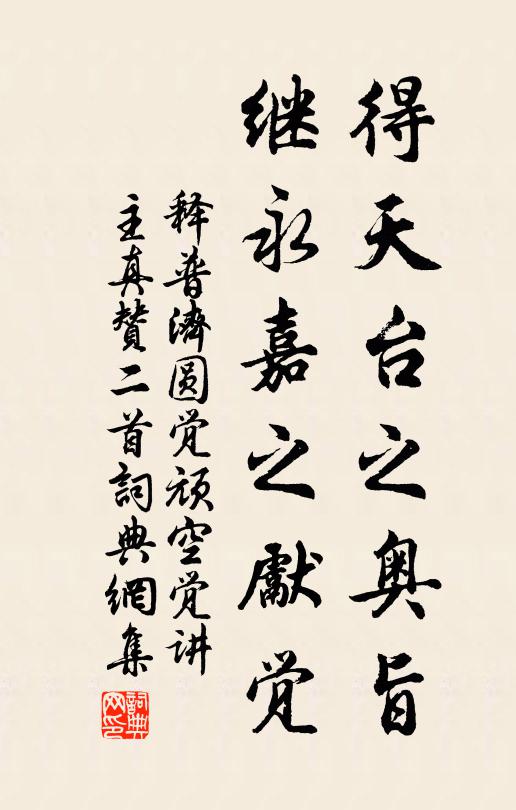 得天台之奥旨
继永嘉之獻觉
释普濟圆觉顽空觉讲
主真赞二首詞典網集
詞典网印